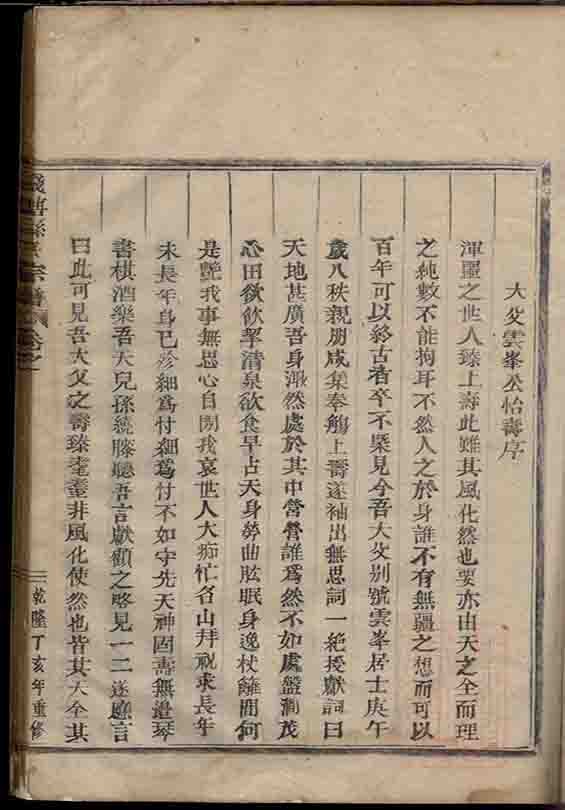 大父雲峯公怡壽序
渾噩之世人臻上壽此雖其風化然也要亦由天之全而理
之純數不能拘耳不然人之於身誰不有無疆之想而可以
百年可以終古者卒不槩見今吾大父别號雲峯居士庚午
歲八秩親朋咸集奉觴上壽遂袖出無思詞一絶授獻詞曰
天地甚廣吾身渺然處於其中營營誰爲然不如處盤澗茂
心田欲飲翠清泉欲食早占天身勞曲肱眠身逸杖籬間何
是艷我事無思心自閒我哀世人大痴忙名山拜祝求長年
未長年身已疹細爲忖細爲忖不如守先天神固壽無邊琴
書棋酒樂吾天兒孫繞膝聽吾言獻顧之略見一二遂颺言
曰此可見吾大父之壽臻耄耋非風化使然也皆其天全其
乾隆丁亥年重修
宗譜